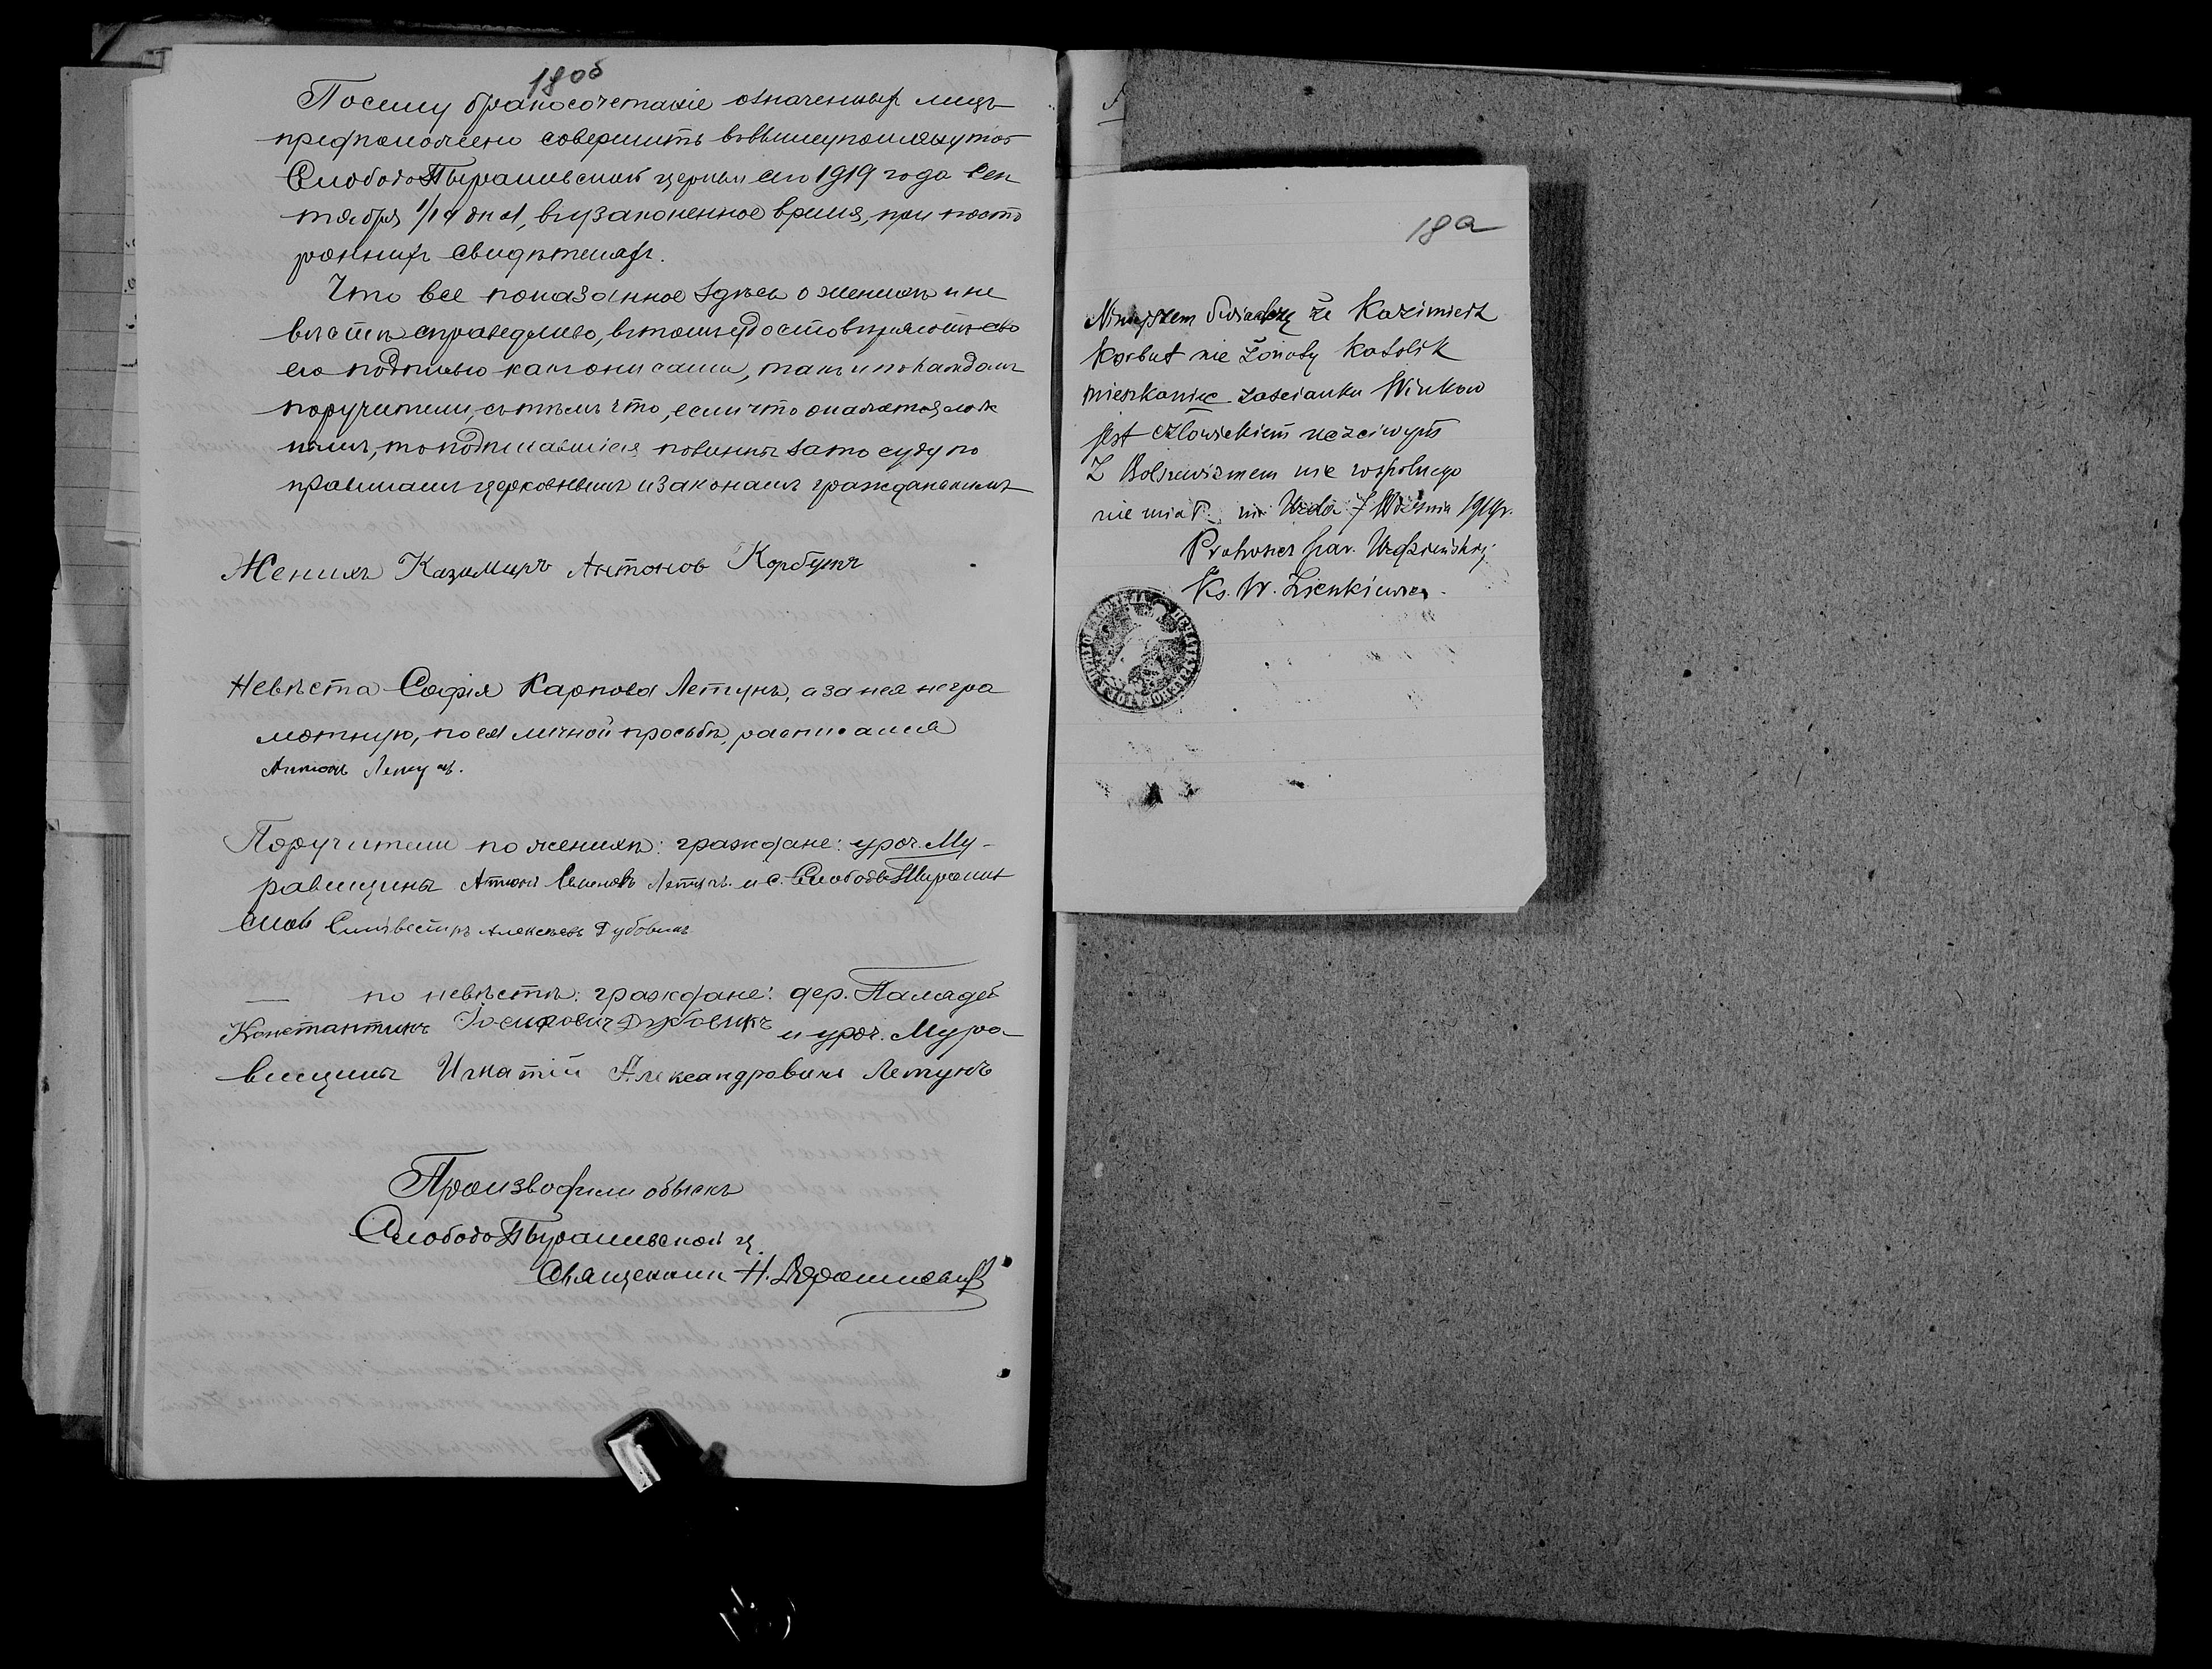 18об
Посему бракосочетаніе означенныхъ лицъ
предположено совершить въ вышеупомянутой
Слободо Пырашевской церкви сего 1919 года Сен
тября 1/14 дня, въ узаконенное время, при посто
роннихъ свидѣтеляхъ.
Что все показанное здѣсь о женихѣ и не
вѣстѣ справедливо, въ томъ удостовѣряютъ сво
ею подписью какъ они сами, такъ и по каждомъ
поручители, съ тѣмъ что, если что окажется лож
нымъ, то подписавшіеся повинны за то суду по
правиламъ церковнымъ и законамъ гражданскимъ
Женихъ Казимиръ Антонов Корбутъ
Невѣста Софія Карпова Летунъ, а за нея негра
мотную, по ея личной просьбѣ, расписался
Антонъ Летунъ.
Поручители по женихѣ: граждане: уроч. Му-
равщины Антонъ Летунъ и с. Слободы Пырашев
ской Силивестръ Алексѣевъ Дубовикъ
— по невѣстѣ: граждане: дер. Паляде
Константинъ Іосифовичъ Дубовикъ и уроч. Мура
вщины Игнатій Александровичъ Летунъ
Производили обыскъ
Слободо Пырашевской ц.
Священник Н.
18а
Niniejszem Świadczę że Kazimierz
Korbut nie żonaty Katolik
mieszkaniec zaścianku Winkow
jest człowiekiem uczciwym
Z Bolszewizmem nic wspólnego
nie miał. m Uzda 7 Września 1919r.
Proboszcz par. Uzdzieńskiej
Ks. W. Zienkiewicz.